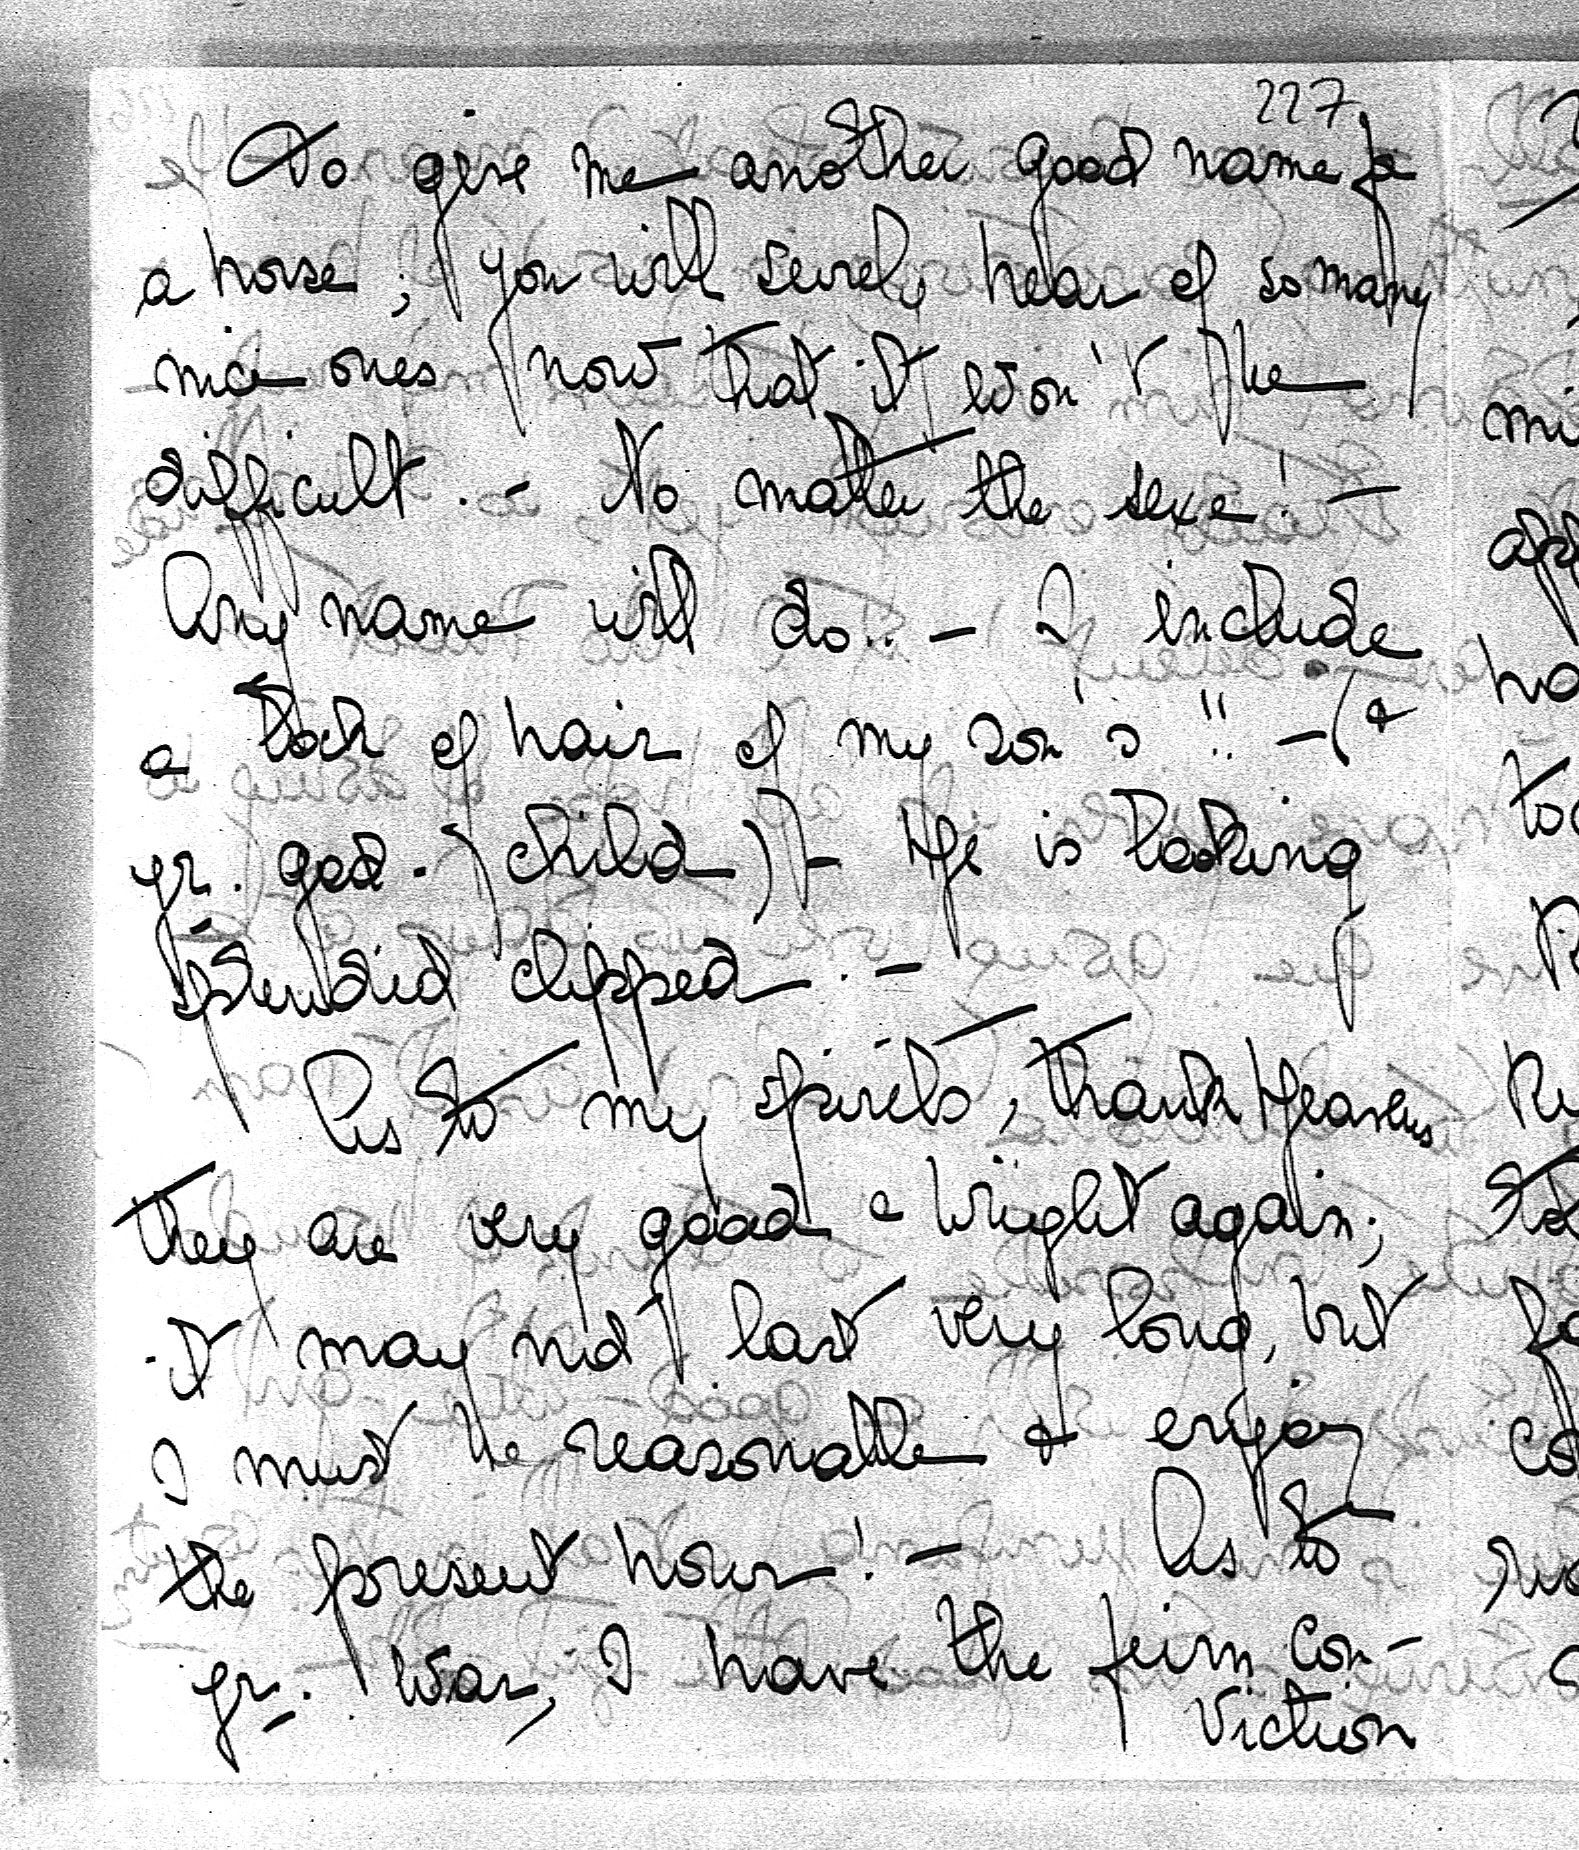 227
To give me another good name for
a horse; you will surely hear of so many
nice ones now that it won't be
difficult. - No matter the sexe! -
Any name will do.. - I include
a lock of hair of my son's!! - (&
yr. god-child) - He is looking
splendid clipped. -
As to my spirits, thank Heavens
they are very good & bright again;
it may not last very long, but
I must be reasonable & enjoy
the present hour! - As to
yr. war, I have the firm con-
viction